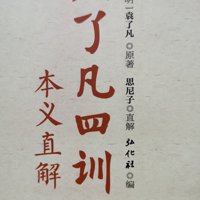 明]袁了凡◎原著
思尼子◎直解
弘化社◎编
了凡四训
本义直解